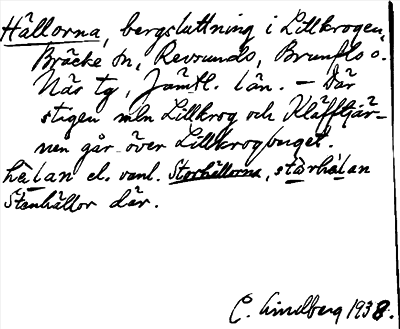 Hällorna, bergsluttning i Lillkrogen,
Bräcke sn, Revsunds, Brunflo o.
Näs tg, Jämtl. län. – Där
stigen mln Lillkrog och Kläfftjär-
nen går över Lillkrogberget.
hälan el. vanl. Storhällorna, stårhälan
Stenhällor där.
C. Lindberg 1938.